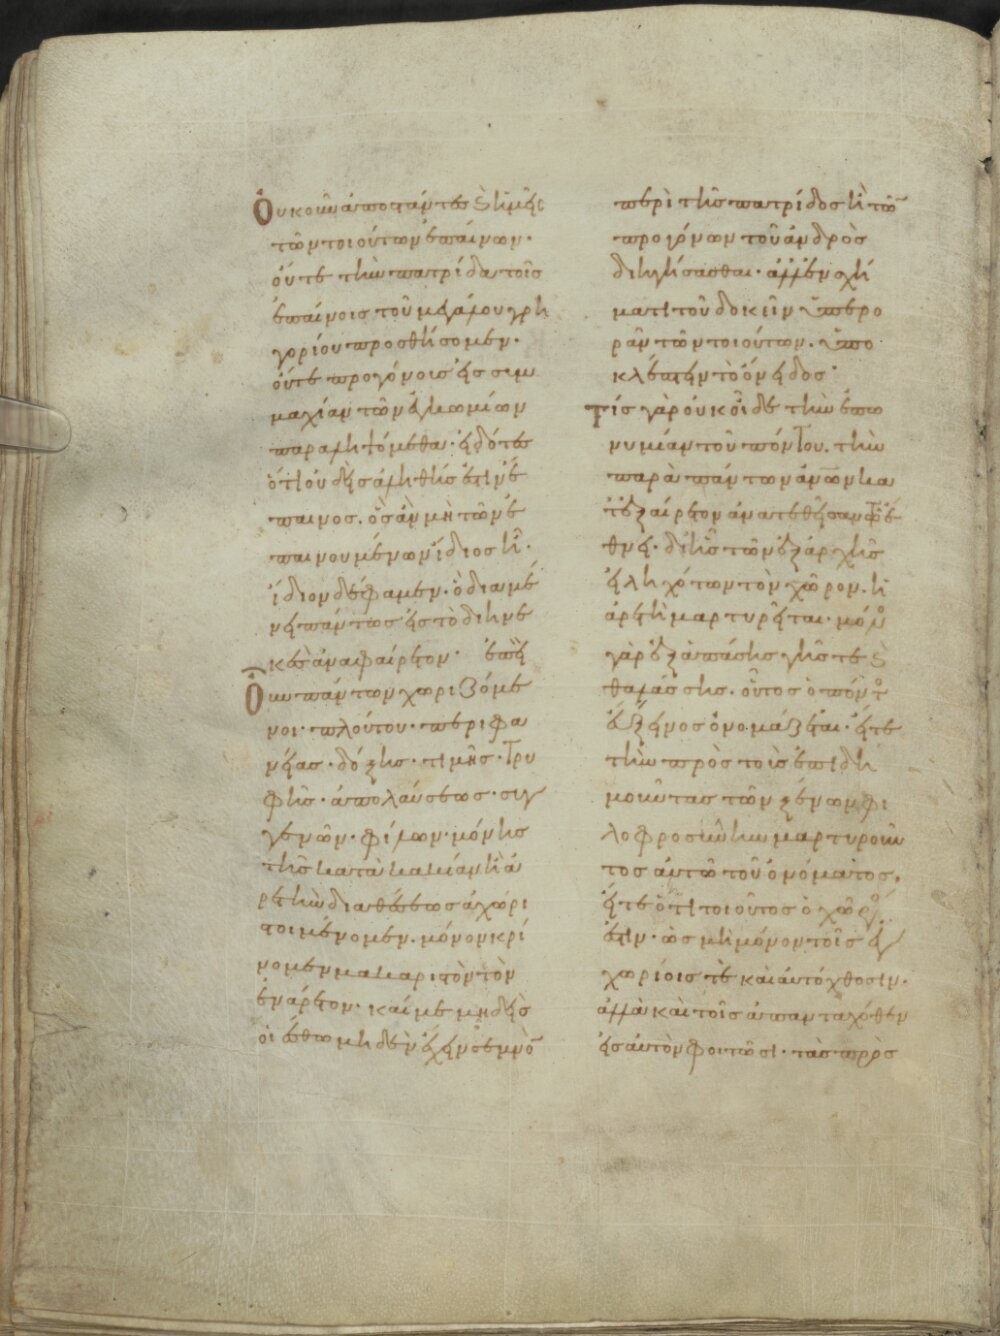 Οὐκοῦν ἀποστάντες κ ἡμεῖς
τῶν τοιούτων ἐπαίνων·
οὔτε τὴν πατρίδα τοῖς
ἐπαίνοις τοῦ μεγάλου γρη
γορίου προσθήσομεν·
οὔτε προγόνοις εἰς συμ
μαχίαν τῶν ἐγκωμίων
παραληψόμεθα· εἰδότες
ὅτι οὐδεὶς ἀληθής ἐστιν ἔ
παινος. ὃς ἂν μὴ τῶν ἐ
παινουμένων ἴδιος ἦ·
ἴδιον δέ φαμεν· ὃ διαμέ
νει πάντως εἰς τὸ διηνε
κὲς ἀναφαίρετον· ἐπεὶ
Οὖν πάντων χωριζόμε
νοι· πλούτου· περιφα
νείας· δόξης· τιμῆς· τρυ
φῆς· ἀπολαύσεως· συγ
γενῶν· φίλων· μόνης
τῆς κατὰ κακίαν ἢ ἀ
ρετὴν διαθέσεως ἀχώρι
τοι μένομεν. μόνον κρί
νομεν μακαριστὸν τὸν
ἐνάρετον· καί με μηδεὶς
οἰέσθω μηδὲν ἔχειν σεμνὸ
περὶ τῆς πατρίδος ἢ τῶ
προγόνων τοῦ ἀνδρὸς
διηγήσασθαι· ἀλλ' ἐν σχή
ματι τοῦ δοκεῖν ὑπερο
ρᾶν τῶν τοιούτων. ὑπο
κλέπτειν τὸ ὄνειδος·
Τίς γὰρ οὐκ οἶδε τὴν ἐπω
νυμίαν τοῦ πόντου. τὴν
παρὰ πάντων ἀνων κα
τ' ἐξαίρετον ἀνατεθεῖσαν τῶ ἔ
θνει· δι' ἧς τῶν ἐξ ἀρχῆς
εἰληχότων τὸν χῶρον. ἡ
ἀρετὴ μαρτυρεῖται· μό
γὰρ ἐξ ἁπάσης γῆς τε κ
θαλάσσης. οὗτος ὁ πόντος
εὔξεινος ὀνομάζεται· εἴτε
τὴν πρὸς τοὺς ἐπιδη
μοῦντας τῶν ξένων φι
λοφροσύνην μαρτυροῦν
τος αὐτῶ τοῦ ὀνόματος.
εἴτε ὅτι τοιοῦτος ὁ χῶρος
ἐστιν· ὡς μὴ μόνον τοῖς ἐγ
χωρίοις τὲ καὶ αὐτόχθοσιν.
ἀλλὰ καὶ τοῖς ἁπανταχόθεν
εἰς αὐτὸν φοιτῶσι· τὰς πρὸς